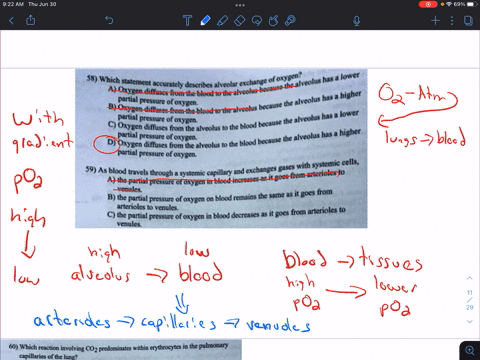 9:22 AM Thu Jun 30
69%
58) Which statement accurately describes alveolar exchange of oxygen?
A) Oxygen diffuses from the blood to the alveolus because the alveolus has a lower
partial pressure of oxygen.
B) Oxygen diffuses from the blood to the alveolus because the alveolus has a higher
partial pressure of oxygen.
C) Oxygen diffuses from the alveolus to the blood because the alveolus has a lower
partial pressure of oxygen.
D) Oxygen diffuses from the alveolus to the blood because the alveolus has a higher
partial pressure of oxygen.
59) As blood travels through a systemic capillary and exchanges gases with systemic cells,
A) the partial pressure of oxygen in blood increases as it goes from arterioles to
venules.
B) the partial pressure of oxygen on blood remains the same as it goes from
arterioles to venules.
C) the partial pressure of oxygen in blood decreases as it goes from arterioles to
venules.
with
gradient
pO2
high
↓
low
O2-Atm
lungs → blood
high low
alveolus → blood
blood → tissues
high → lower
pO2 pO2
arterioles → capillaries → venules
11
/
29
60) Which reaction involving CO2 predominates within erythrocytes in the pulmonary
capillaries of the lung?